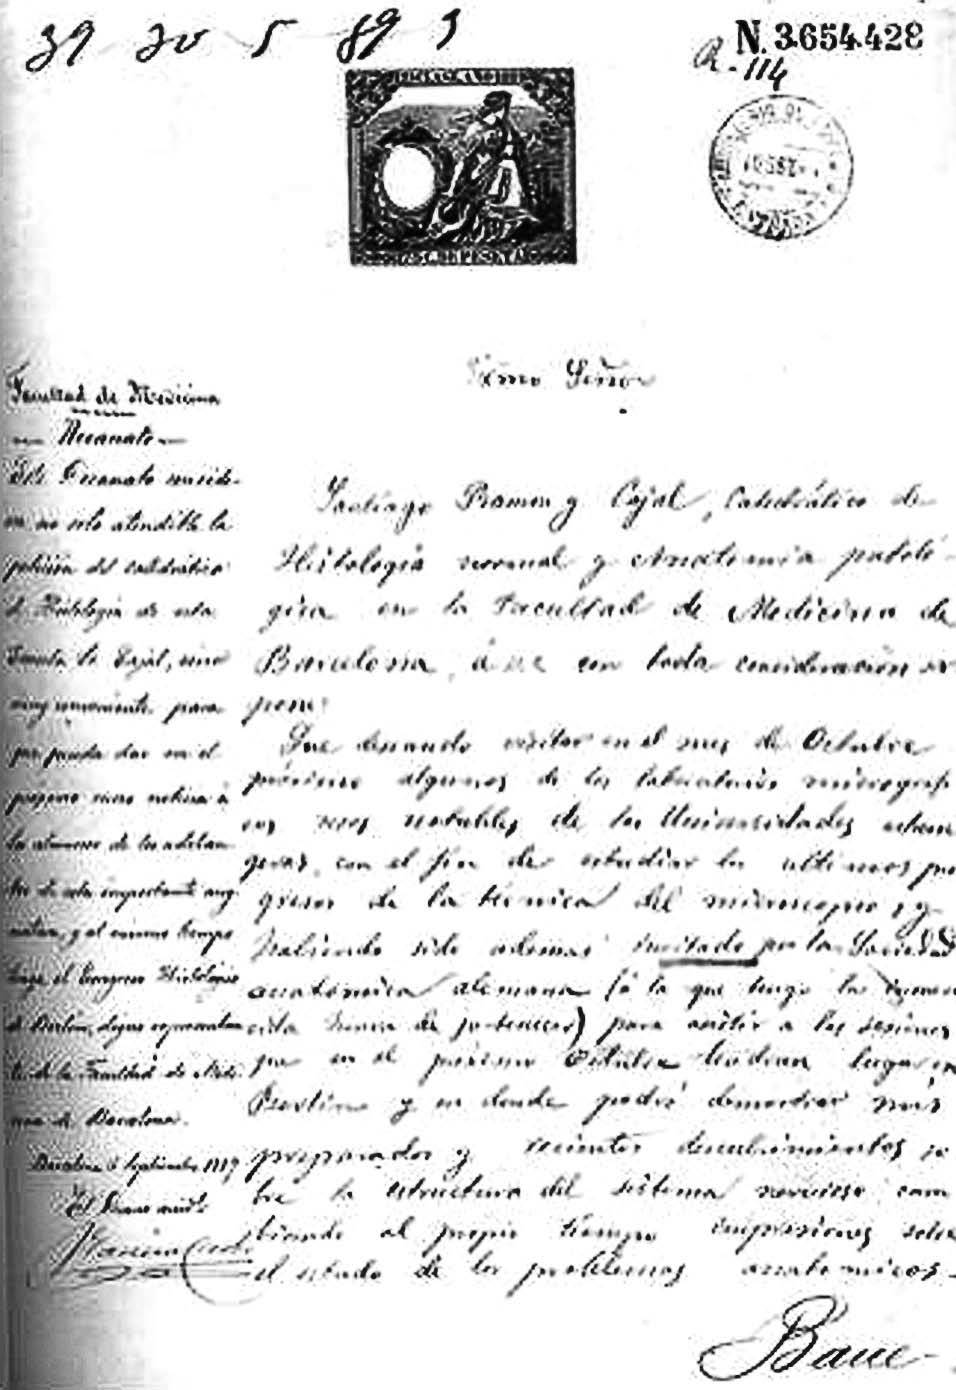 39 20 5 89 3
N. 3.654.428
R-114
75 C. DE PESETA
Exmo Señor
Facultad de Medicina
Decanato
Este Decanato conside-
ra no solo atendible la
petición del catedrático
de Histología de esta
Escuela Sr Cajal, sino
muy conveniente para
que pueda dar en el
próximo curso noticia á
los alumnos de los adelan-
tos de esta importante asig-
natura, y al mismo tiempo
tenga el Congreso Histológico
de Berlin, digno representan
te de la Facultad de Medi-
cina de Barcelona.
Barcelona 6 Septiembre 1889
El Decano
Santiago Ramon y Cajal, Catedrático de
Histología normal y Anatomía patoló-
gica en la Facultad de Medicina de
Barcelona, á V.E. con toda consideración ex
pone:
Que deseando visitar en el mes de Octubre
próximo algunos de los laboratorios micrográfi
cos mas notables de las Universidades extran
geras, con el fin de estudiar los ultimos pro
gresos de la técnica del microscopio, y
habiendo sido ademas invitado por la Sociedad
anatómica alemana (á la que tengo la inmere
cida honra de pertenecer) para asistir a las sesiones
que en el próximo Octubre tendran lugar en
Berlin y en donde podré demostrar mis
preparados y recientes descubrimientos so
bre la estructura del sistema nervioso cam
biando al propio tiempo impresiones sobre
el estado de los problemas anatómicos